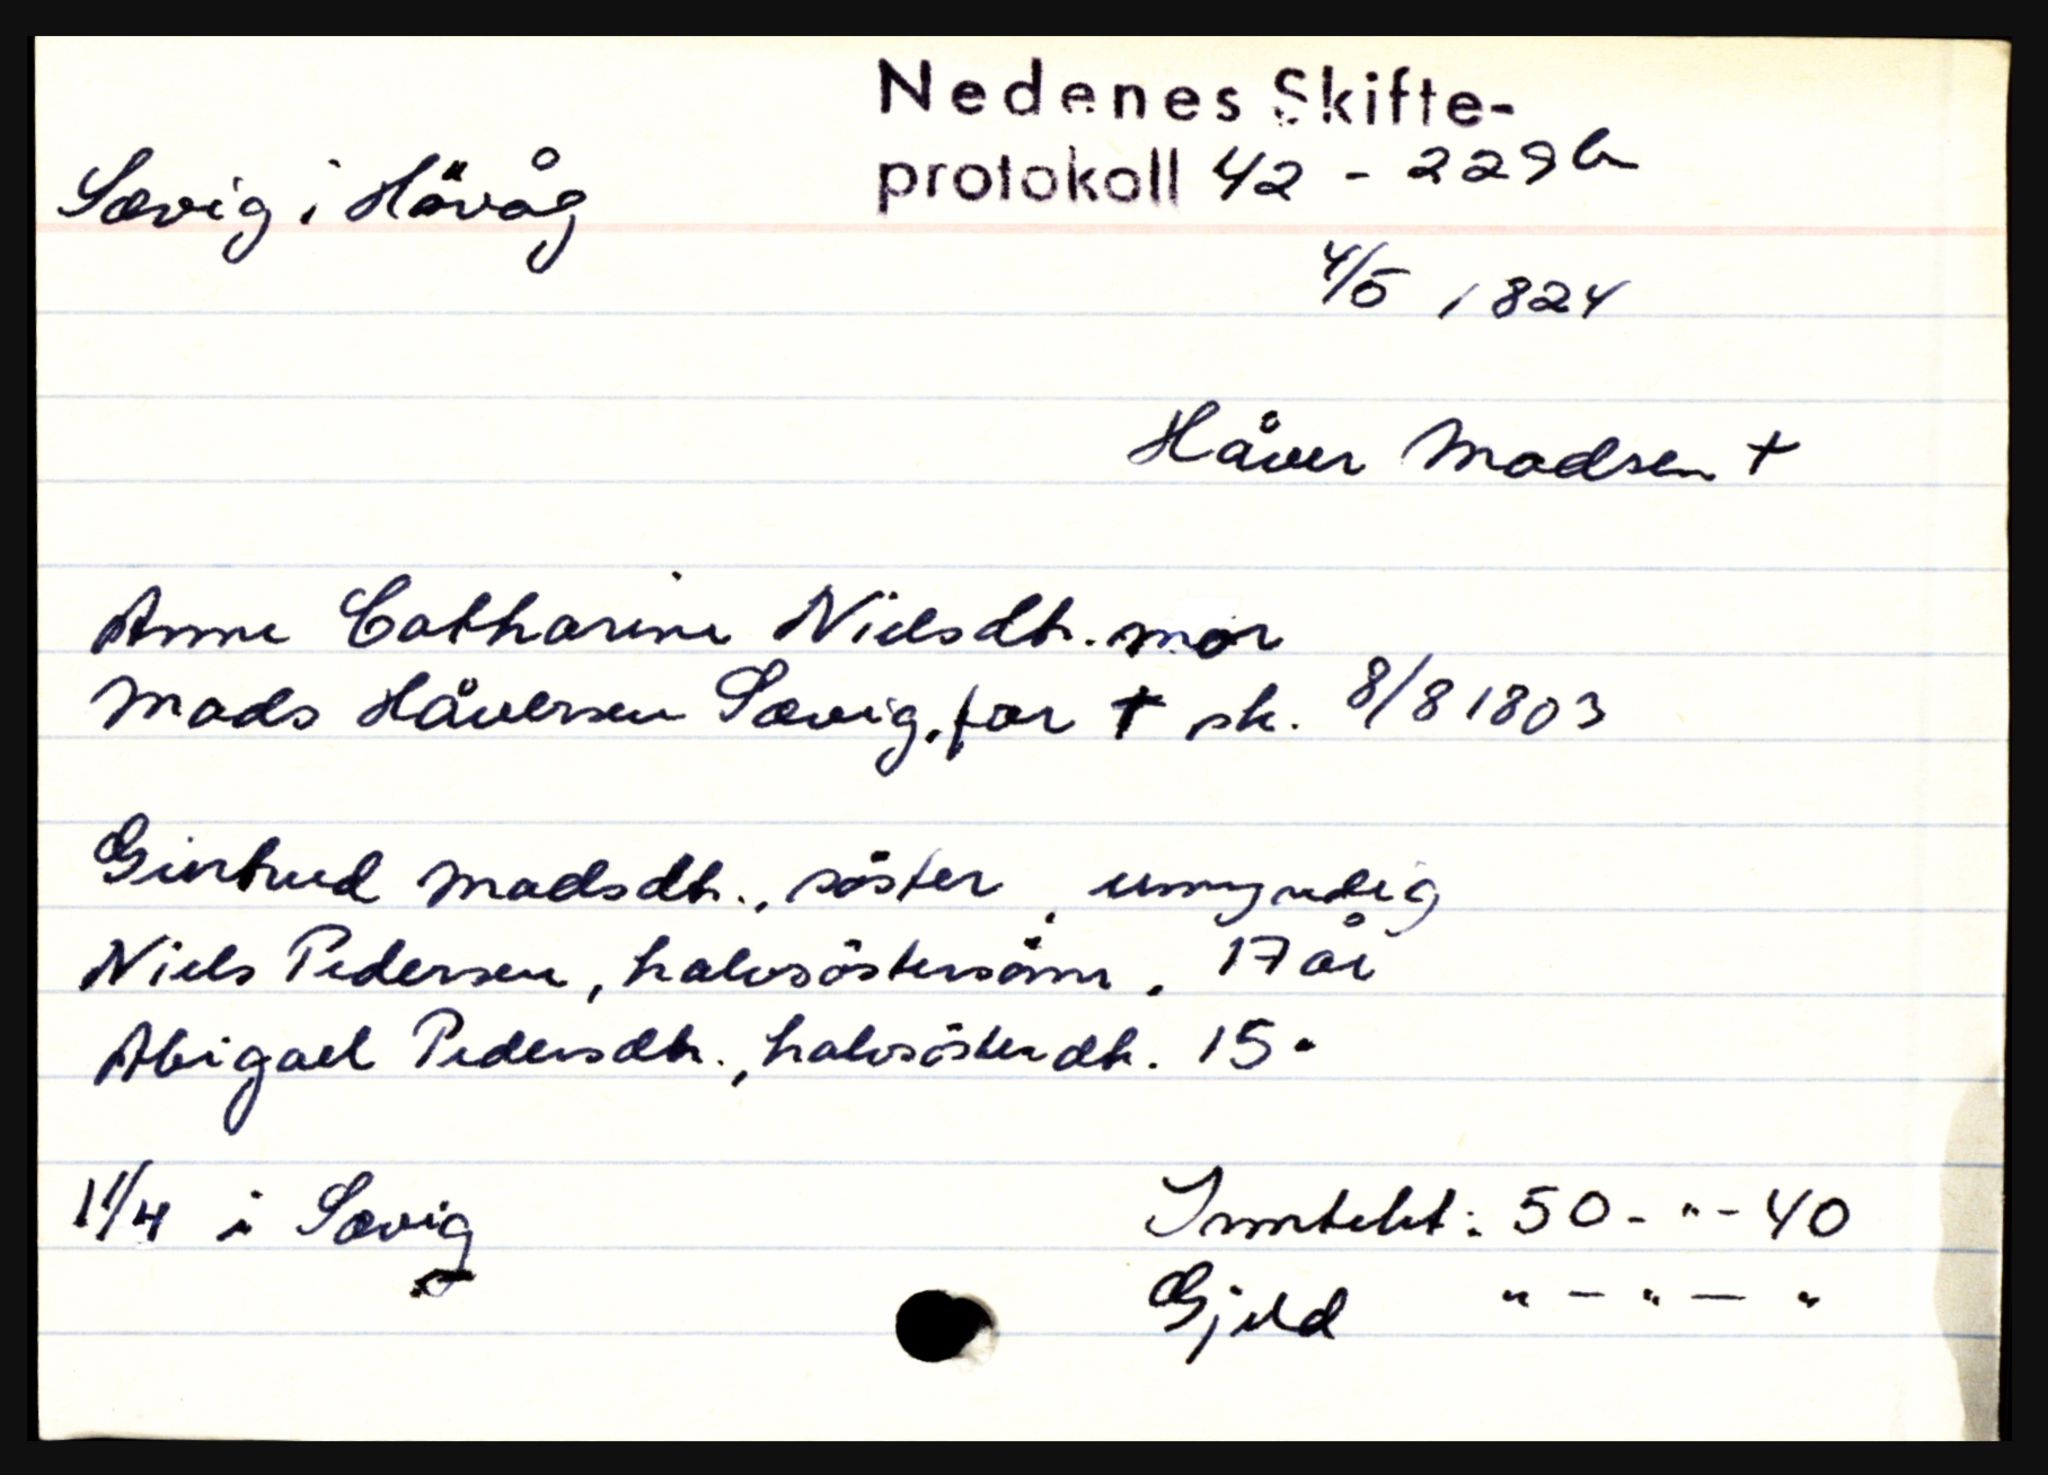 Nedenes Skifte-
protokoll 42 - 229b
Sævig i Hövåg
4/5 1824
Håver Madsen †
Anne Catharine Nielsdtr. mor
Mads Håversen Sævig, far † sk. 8/8 1803
Giertrud Madsdtr., söster, umyndig
Niels Pedersen, halvsöstersönn, 17 år
Abigael Pedersdtr., halvsösterdtr. 15 "
11/4 i Sævig
Inntekt: 50 - " - 40
Gjeld " - " - "